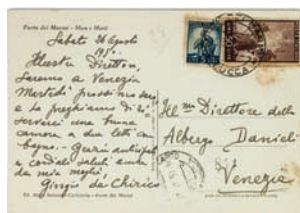 Forte dei Marmi - Mare e Monti
Sabato 26 Agosto
195
Illustre Direttore,
Saremo a Venezia
Martedì prossimo sera
e la preghiamo di ri-
servarci una buona
camera a due letti con
bagno. - Grazie anticipate
e cordiali saluti anche
da mia moglie,
Giorgio de Chirico
Ill.mo Direttore dello
Albergo Danieli
Venezia
LUCCA